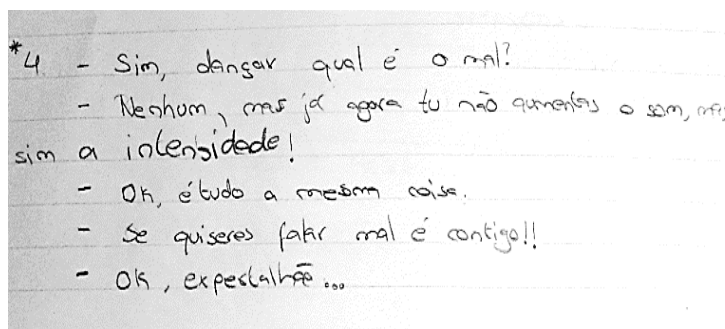 *4 - Sim, dançar qual é o mal?
- Nenhum, mas já agora tu não aumentas o som, mas
sim a intensidade!
- Ok, é tudo a mesma coisa.
- Se quiseres falar mal é contigo!!
- Ok, espertalhão...